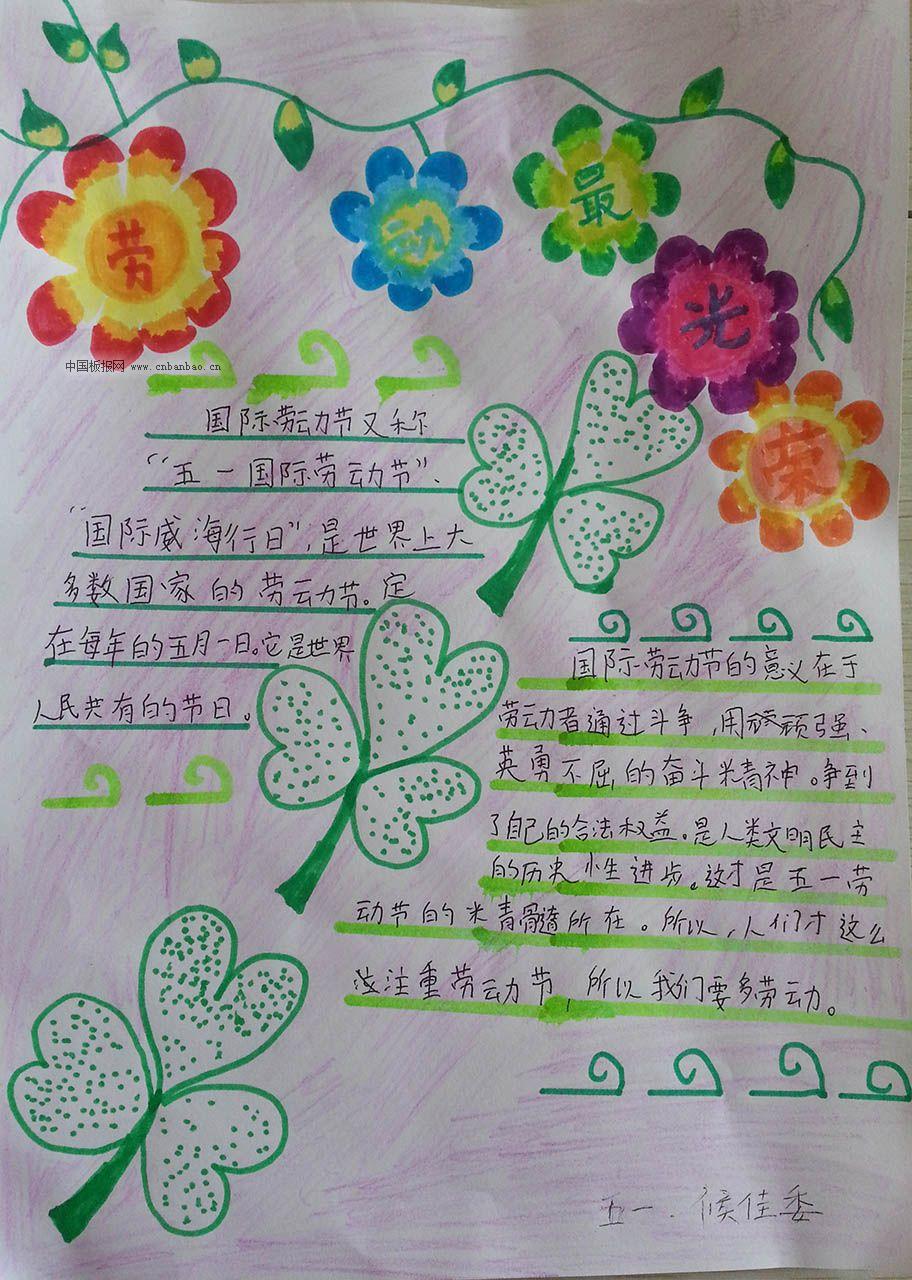 劳动最光荣
中国板报网 www.cnbanbao.cn
国际劳动节又称
“五一国际劳动节”、
“国际威海行日”,是世界上大
多数国家的劳动节。定
在每年的五月一日。它是世界
人民共有的节日。
国际劳动节的意义在于
劳动者通过斗争,用顽强、
英勇不屈的奋斗精神。争到
了自己的合法权益。是人类文明民主
的历史性进步。这才是五一劳
动节的精髓所在。所以,人们才这么
注重劳动节,所以我们要多劳动。
五一.候佳委